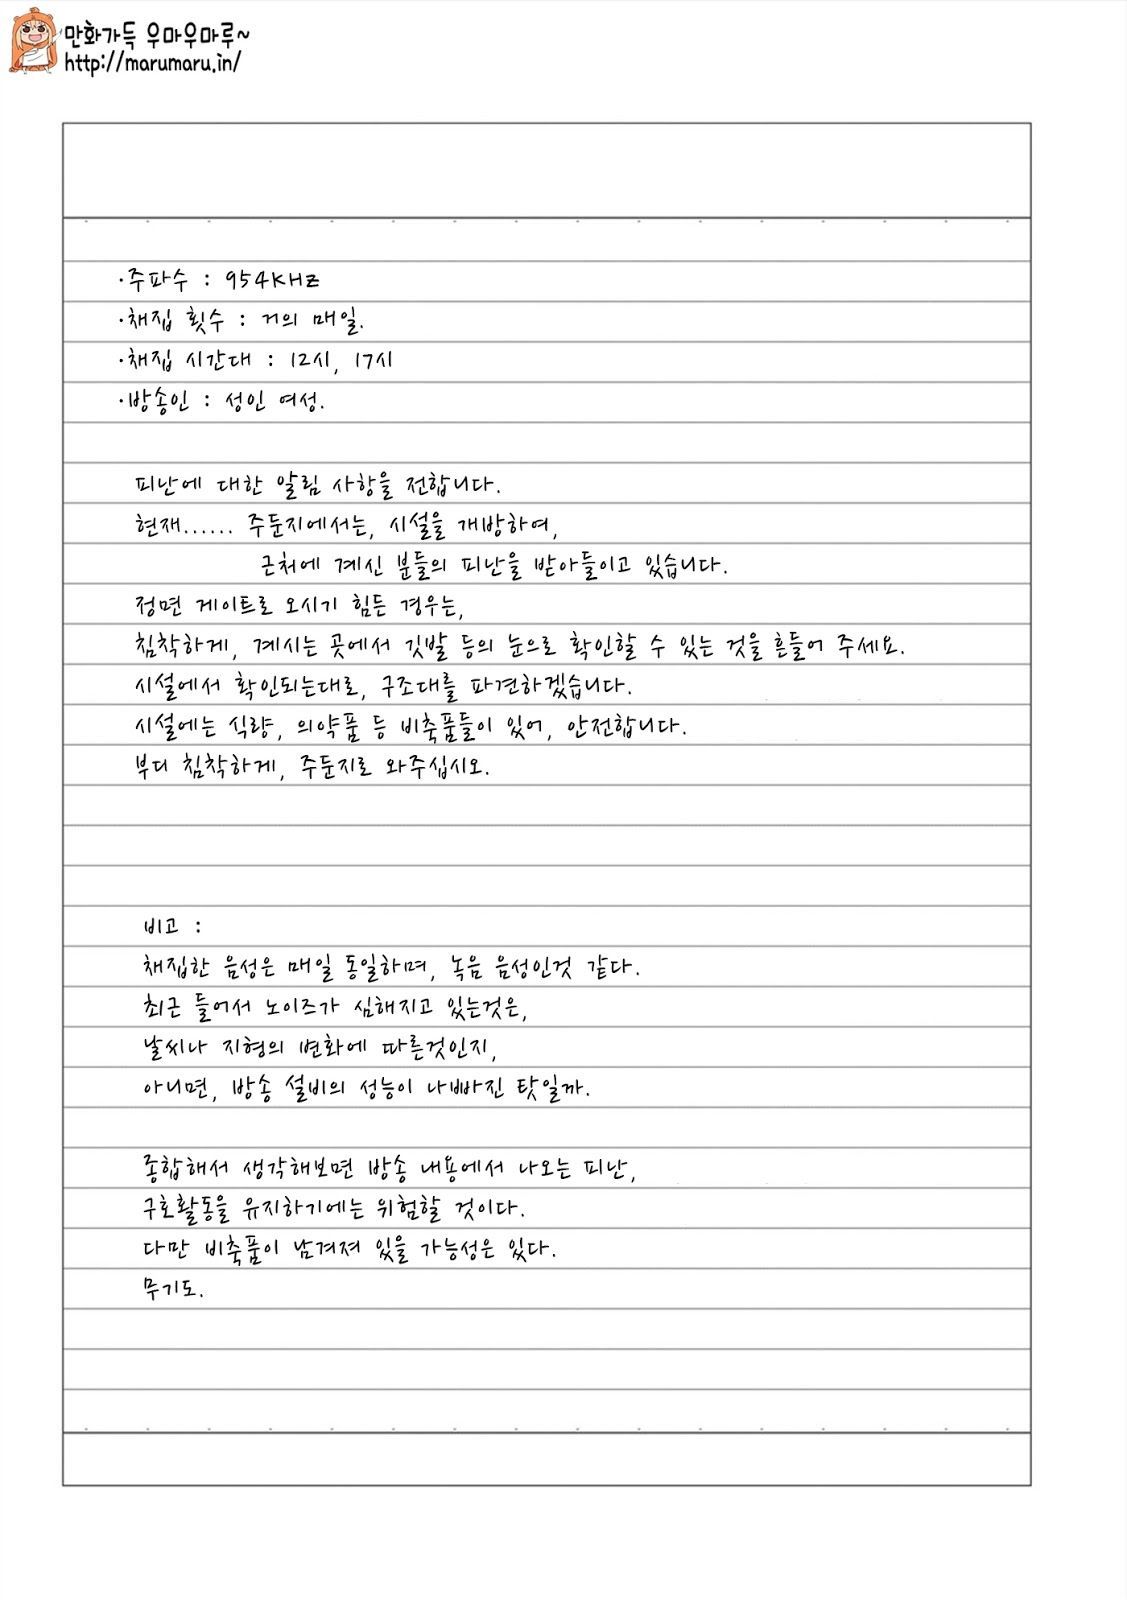 만화가득 우마우마루~
http://marumaru.in/
·주파수 : 954KHz
·채집 횟수 : 거의 매일.
·채집 시간대 : 12시, 17시
·방송인 : 성인 여성.
피난에 대한 알림 사항을 전합니다.
현재...... 주둔지에서는, 시설을 개방하여,
근처에 계신 분들의 피난을 받아들이고 있습니다.
정면 게이트로 오시기 힘든 경우는,
침착하게, 계시는 곳에서 깃발 등의 눈으로 확인할 수 있는 것을 흔들어 주세요.
시설에서 확인되는대로, 구조대를 파견하겠습니다.
시설에는 식량, 의약품 등 비축품들이 있어, 안전합니다.
부디 침착하게, 주둔지로 와주십시오.
비고 :
채집한 음성은 매일 동일하며, 녹음 음성인것 같다.
최근 들어서 노이즈가 심해지고 있는것은,
날씨나 지형의 변화에 따른것인지,
아니면, 방송 설비의 성능이 나빠진 탓일까.
종합해서 생각해보면 방송 내용에서 나오는 피난,
구호활동을 유지하기에는 위험할 것이다.
다만 비축품이 남겨져 있을 가능성은 있다.
무기도.